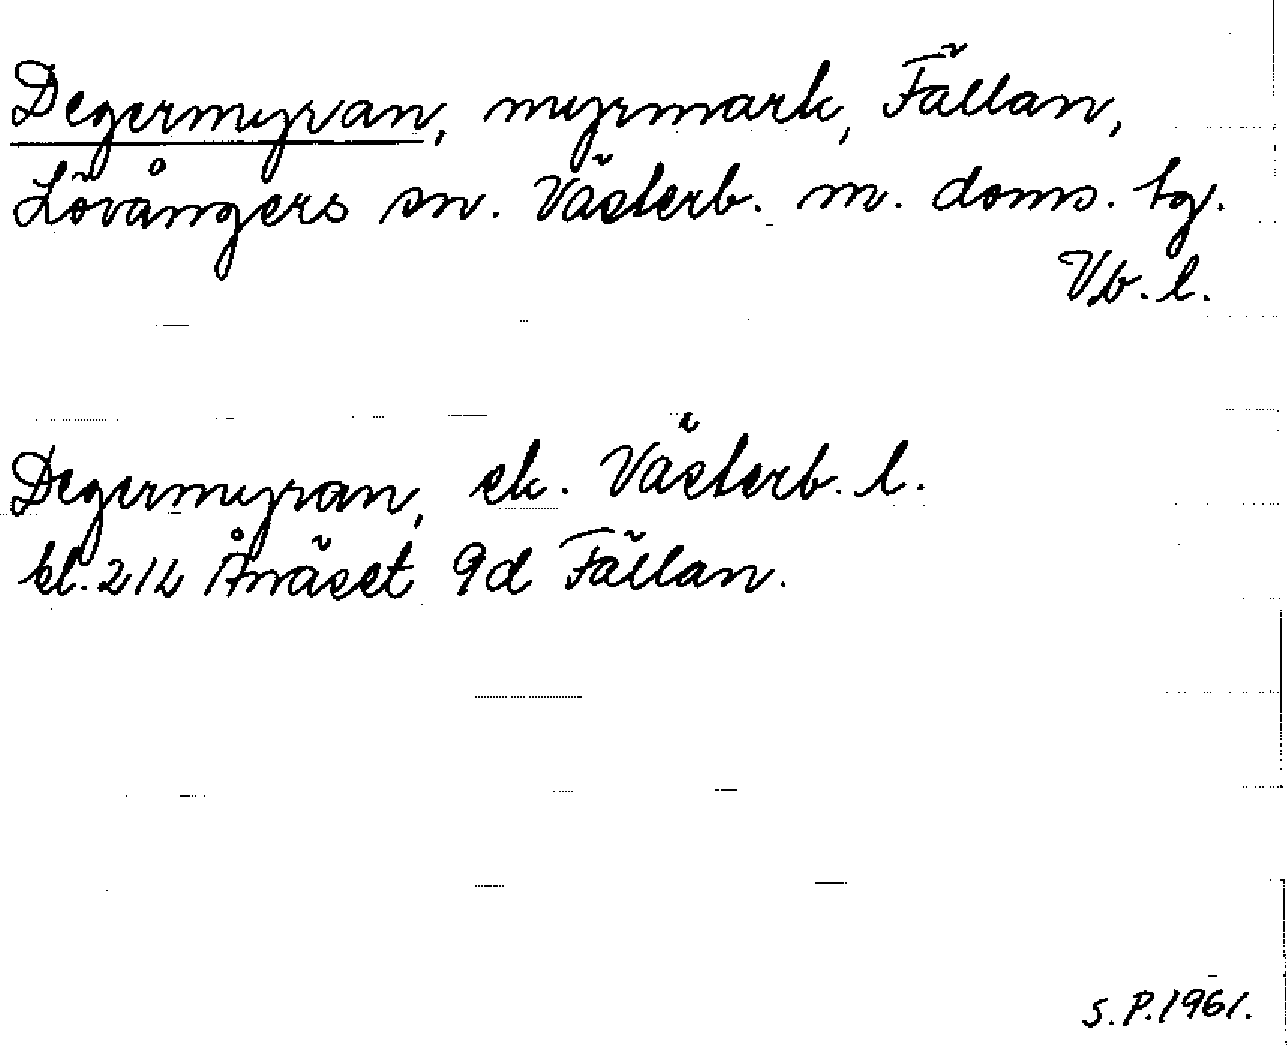 Degermyran, myrmark, Fällan,
Lövångers sn. Västerb. m. doms. tg.
Vb. l.
Degermyran, ek. Västerb. l.
bl. 212 Ånäset 9d Fällan.
S.P. 1961.